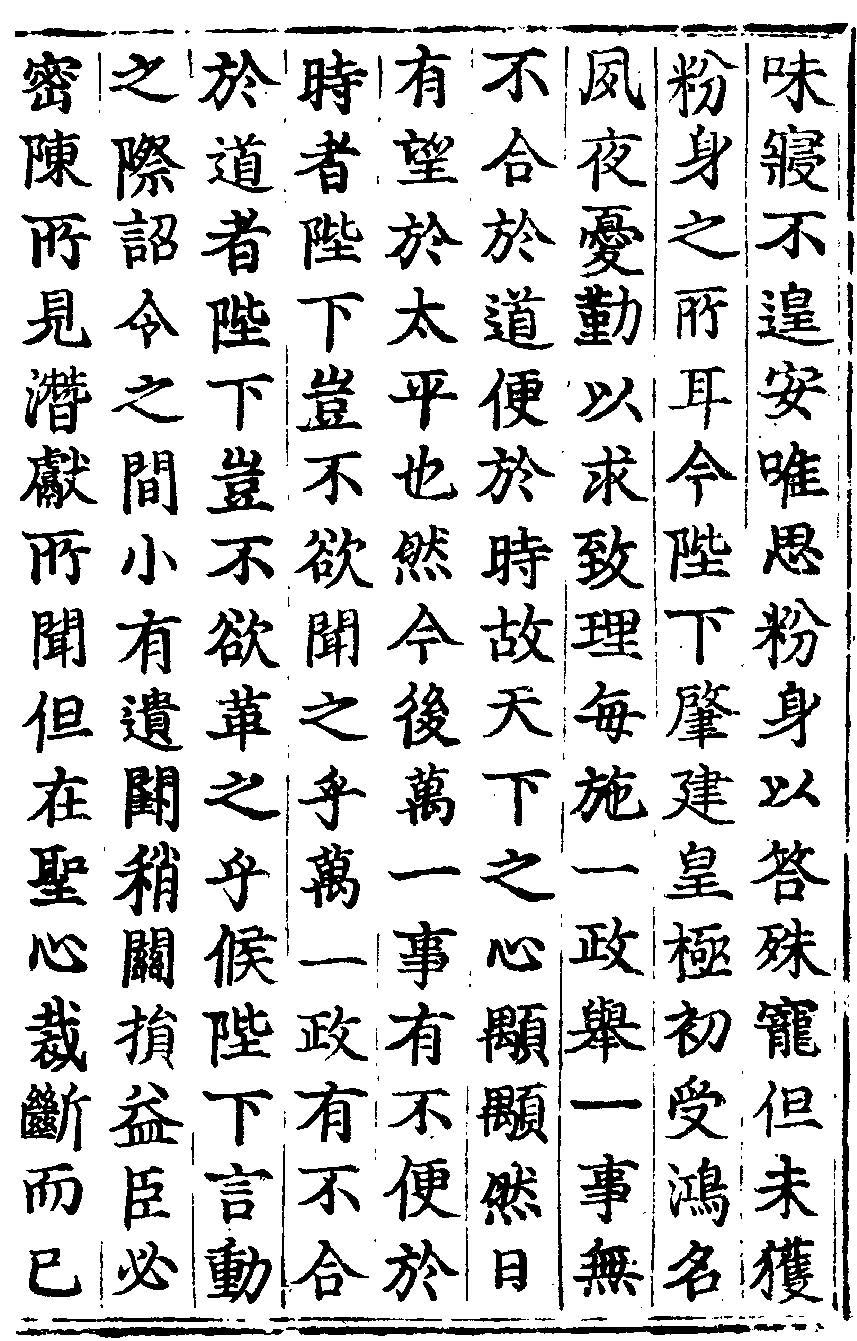 味寢不遑安唯思粉身以答殊寵但未獲
粉身之所耳今陛下肇建皇極初受鴻名
夙夜憂勤以求致理每施一政舉一事無
不合於道便於時故天下之心顒顒然日
有望於太平也然今後萬一事有不便於
時者陛下豈不欲聞之乎萬一政有不合
於道者陛下豈不欲革之乎候陛下言動
之際詔令之間小有遺闕稍關損益臣必
密陳所見潛獻所聞但在聖心裁斷而已